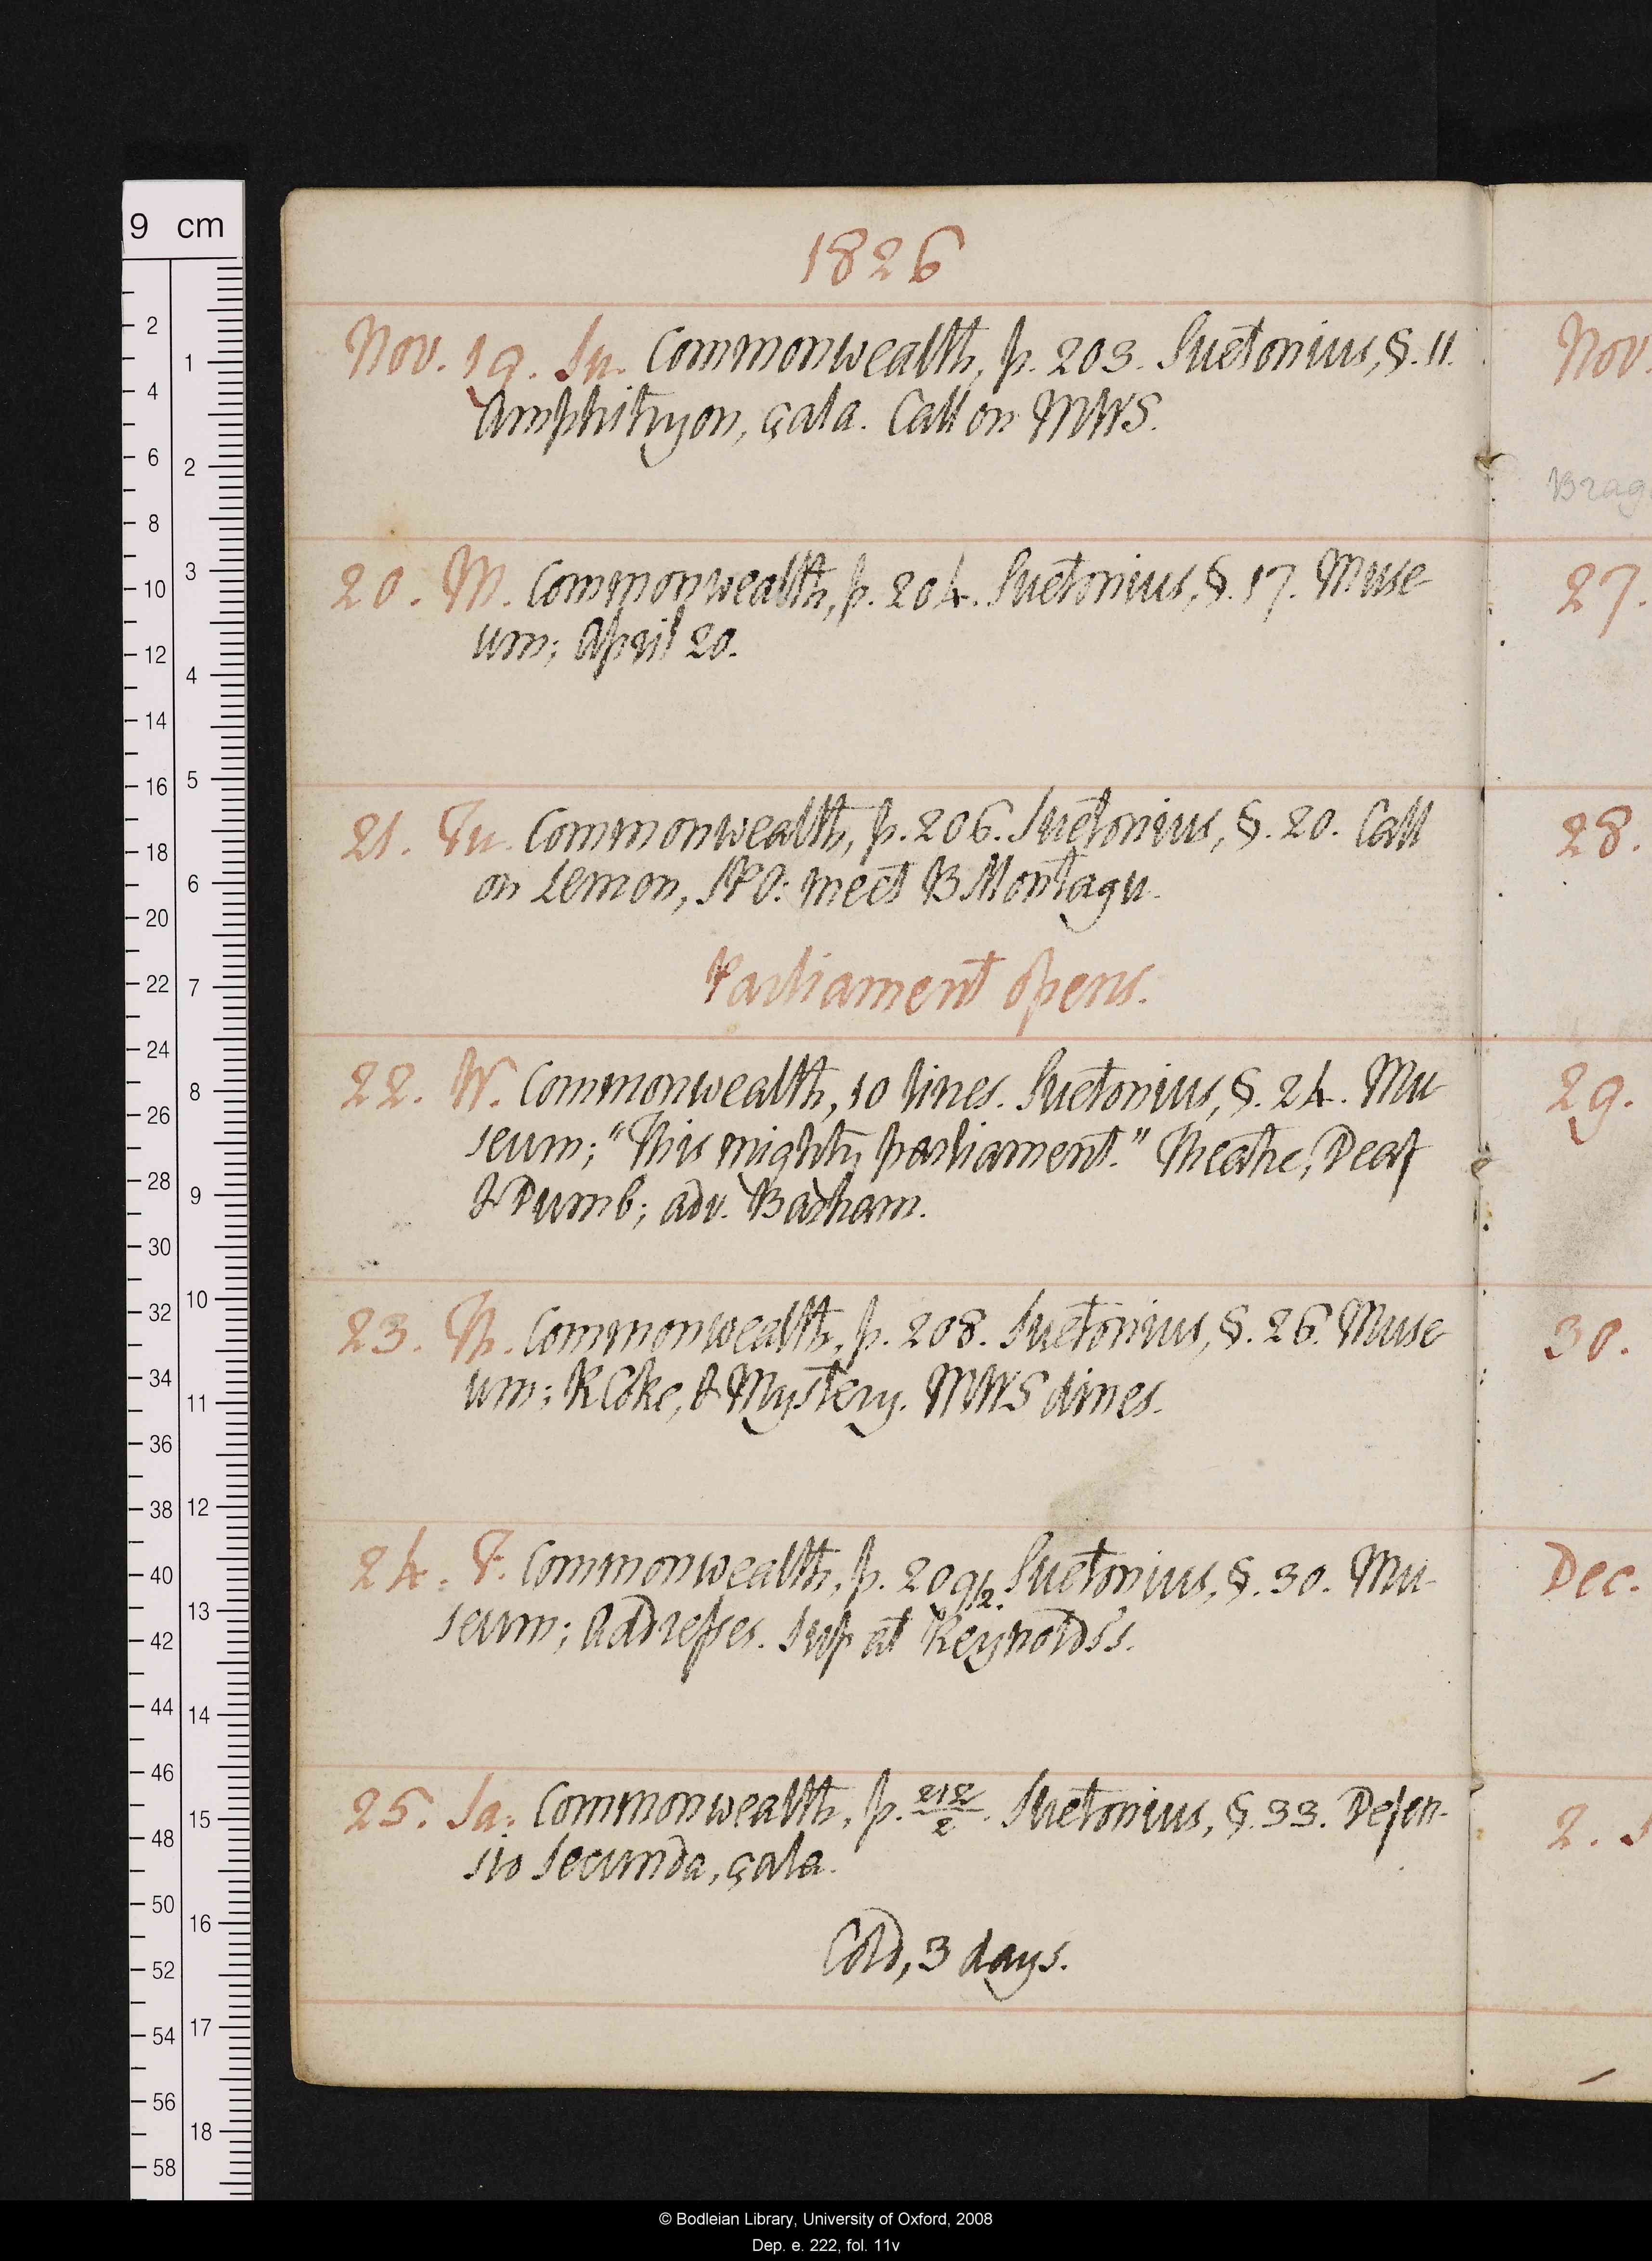 1826
Nov. 19. Su. Commonwealth, p. 203. Suetonius, §. 11.
Amphitryon, çala. Call on MWS.
20. M. Commonwealth, p. 204. Suetonius, §. 17. Muse
um; April 20.
21. Tu. Commonwealth, p. 206. Suetonius, §. 20. Call
on Lemon, SPO: meet B Montagu.
Parliament opens.
22. W. Commonwealth, 10 lines. Suetonius, §. 24. Mu
seum; “This mighty parliament.” Theatre, Deaf
& Dumb; adv. Badham.
23. Th. Commonwealth, p. 208. Suetonius, §. 26. Muse
um; R Coke, & Mystery. MWS dines.
24. F. Commonwealth, p. 209½. Suetonius, §. 30. Mu-
seum; Addresses. Sup at Reynolds's.
25. Sa. Commonwealth, p. 212/2. Suetonius, §. 33. Defen-
sio Secunda, çala.
Cold, 3 days.
Nov.
Brag
27.
28.
29.
30.
Dec.
2. S
9 cm
2
4
6
8
10
12
14
16
18
20
22
24
26
28
30
32
34
36
38
40
42
44
46
48
50
52
54
56
58
1
2
3
4
5
6
7
8
9
10
11
12
13
14
15
16
17
18
© Bodleian Library, University of Oxford, 2008
Dep. e. 222, fol. 11v